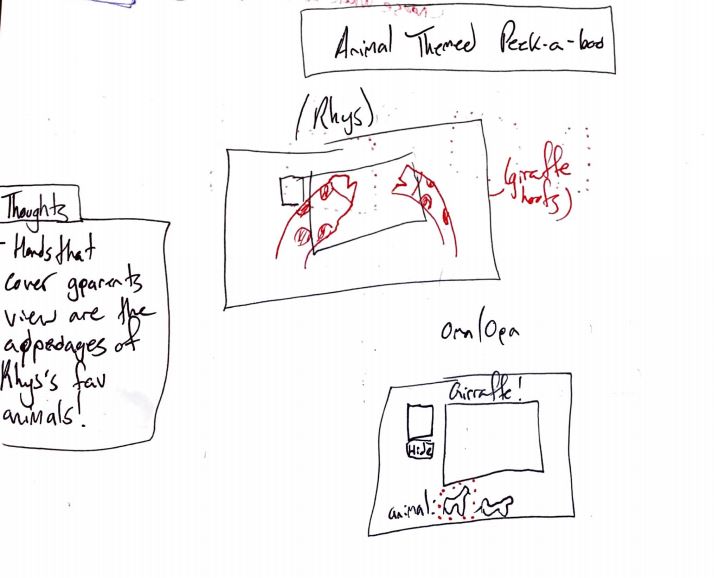 Animal Themed Peek-a-boo
(Rhys)
(giraffe
hoofs)
Thoughts
- Hands that
cover gparents
view are the
appedages of
Rhys's fav
animals!
Oma/Opa
Girraffe!
Hide
animal: